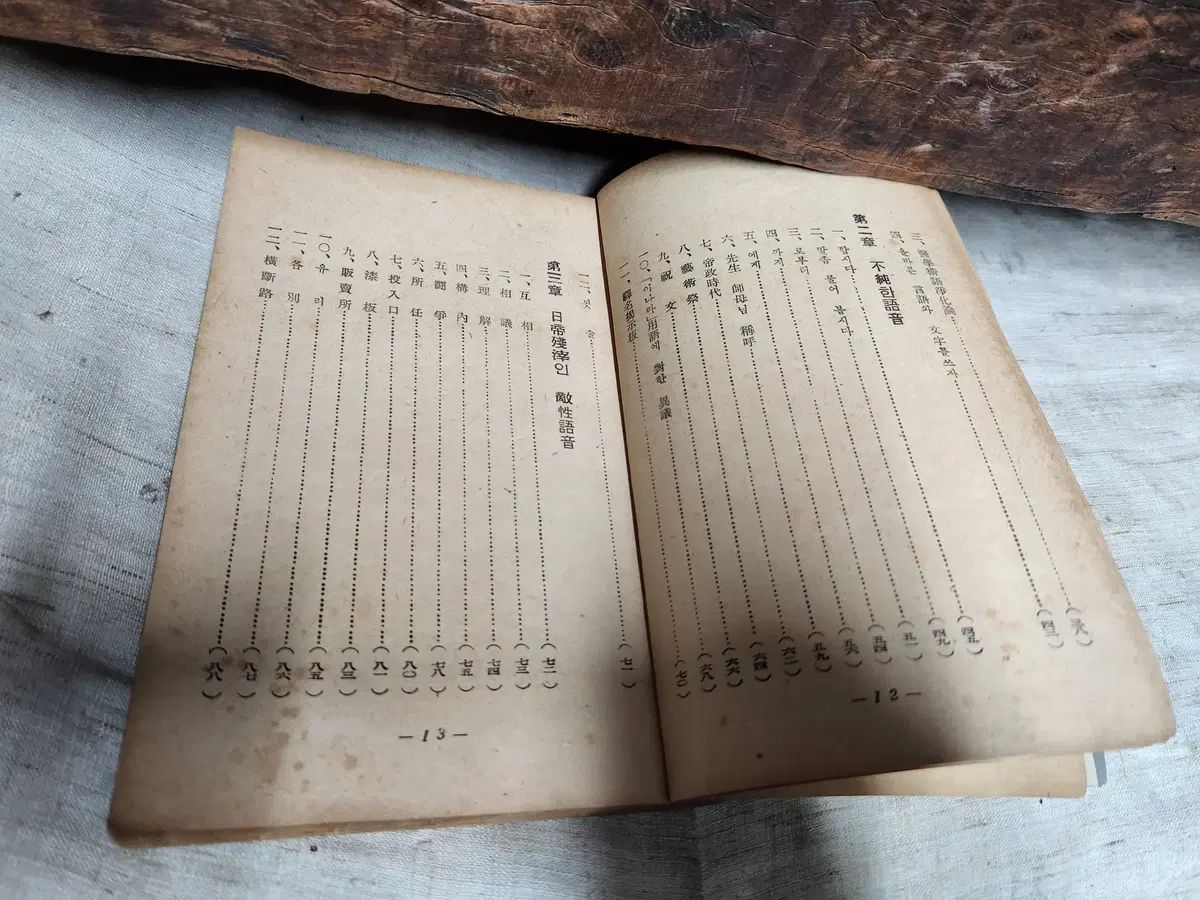 三、醫學術語淨化論……(三八)
四、올바른 言語와 文字를쓰자……(四三)
第二章 不純한語音
一、합시다……(四九)
二、말좀 물어 봅시다……
三、로부터……(五一)
四、까지……(五四)
五、에게……(五六)
六、先生 師母님 稱呼……(五九)
七、帝政時代……(六二)
八、藝術祭……(六四)
九、祝 文……(六六)
一〇、「이나마」用語에 對한 異議……(六八)
一一、譯名揭示板……(七〇)
— 12 —
一二、……(七一)
第三章 日帝殘滓인 敵性語音
一、互 相……(七二)
二、相 議……(七三)
三、理 解……(七四)
四、構 內……(七五)
五、鬪 爭……(七八)
六、所 任……(八〇)
七、投入口……(八一)
八、漆 板……(八三)
九、販賣所……(八五)
一〇、유 리……(八六)
一一、各 別……
一二、橫斷路……(八八)
— 13 —